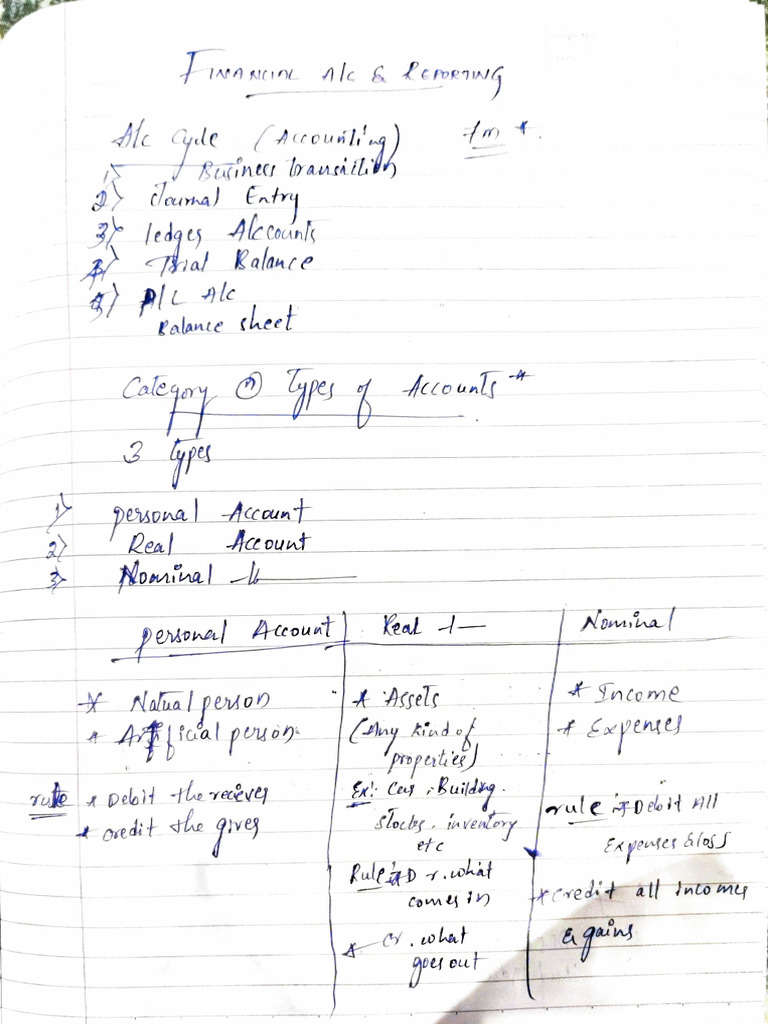 FINANCIAL A/c & REPORTING
A/c Cycle (Accounting) 7m *.
1) Business transition
2) Journal Entry
3) ledges Accounts
4) Trial Balance
5) P/L A/c
Balance sheet
Category Types of Accounts *
3 Types
1) personal Account
2) Real Account
3) Nominal -11-
personal Account
* Natual person
* Artificial person.
rule * Debit the reciever
* credit the giver
Real -1-
* Assets
(Any kind of
properties)
Ex: Car, Building.
stocks. inventory
etc
Rule: Dr. what
comes in
* Cr. what
goes out
Nominal
* Income
* Expenses
rule * Debit All
Expenses & loss
* credit all incomes
& gains